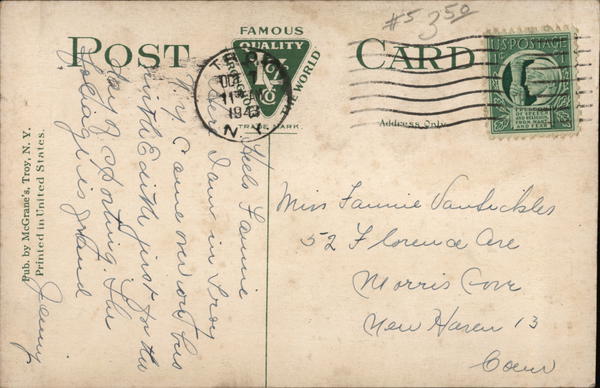 #5 3.50
POST CARD
FAMOUS
QUALITY
TROY
N.Y.
THE WORLD
TRADE MARK.
OCT
11
1943
N.Y.
U.S. POSTAGE
1¢
OF SPEECH
AND RELIGION
FROM WANT
AND FEAR
Address Only.
Hello Fannie
I am in Troy
N.Y. Came over on bus
with Edith just for the
day of Shopping. The
foliage is grand
Jenny
Miss Fannie VanSickles
52 Florence Ave
Morris Cove
New Haven 13
Conn
Pub. by McGrane's, Troy, N. Y.
Printed in United States.